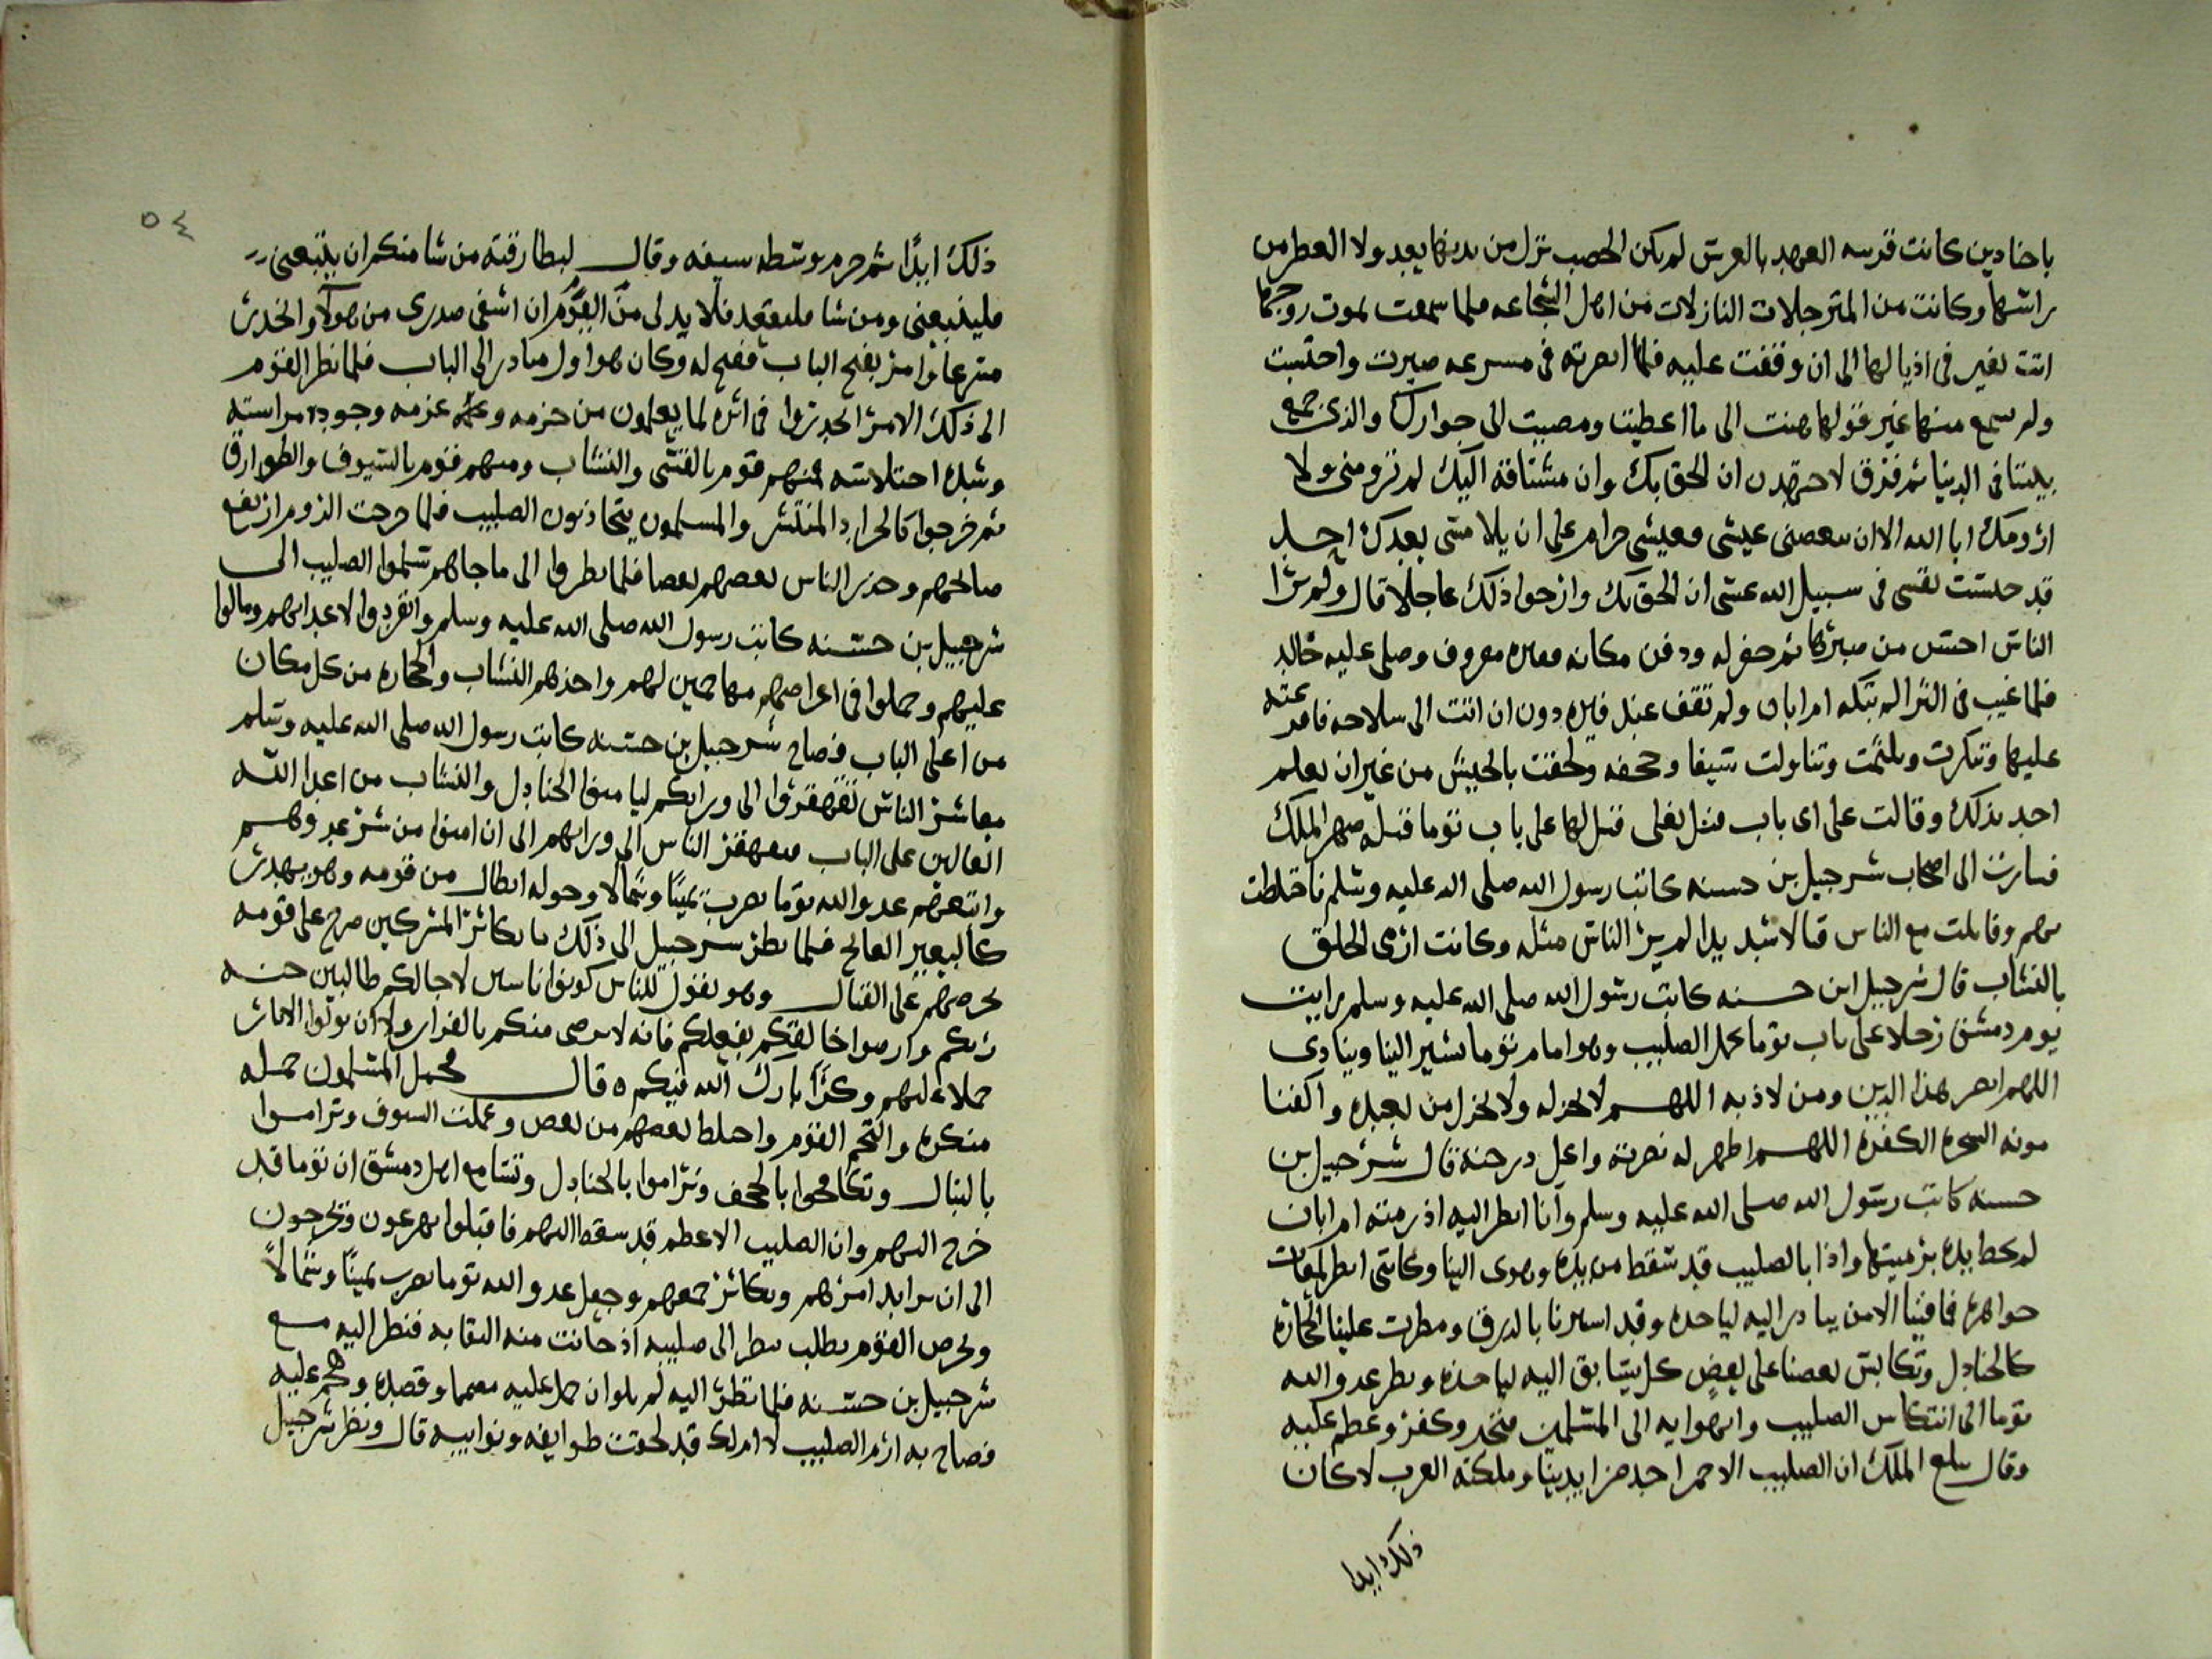 باجنادين كانت قريبه العهد بالعرس لم يكن الخصب نزل من يديها بعد ولا العطر من
راسها وكانت من المترجلات النازلات من اهل الشجاعه فلما سمعت بموت زوجها
اتت تعير في اذيالها الى ان وقفت عليه فلما ابصرته في مسرعه صبرت واحتسبت
ولم يسمع منها غير قولها هنيت الى ما اعطيت ومضيت الى جوارك والذى جمع
بيننا فى الدنيا ثم فرق لاجتهدن ان الحق بك وان مشتاقة اليك لم تزومنى ولا
ازومك ابا الله الا ان ينغصنى عيشى وعيشى حرام على ان يلامسنى بعدك احد
قد حبست نفسى فى سبيل الله عسى ان الحق بك وارجوا ذلك عاجلا قال ولم يرا
الناس احسن من صبرها ثم حفر له ودفن مكانه وقبره معروف وصلى عليه خالد
فلما غيب فى الثرا لم تبكه ام ابان ولم تقف عند قبره دون ان اتت الى سلاحه فافرغته
عليها وتنكرت وتلثمت وتناولت سيفا وجحفه ولحقت بالجيش من غير ان يعلم
احد بذلك وقالت على اى باب قتل بعلى قيل لها على باب توما قتله صهر الملك
فسارت الى اصحاب شرحبيل بن حسنه كاتب رسول الله صلى الله عليه وسلم فاختلطت
بهم وقاتلت مع الناس قتالا شديدا لم ير الناس مثله وكانت ارمى الخلق
بالنشاب قال شرحبيل ابن حسنه كاتب رسول الله صلى الله عليه وسلم رايت
يوم دمشق رجلا على باب توما يحمل الصليب وهو امام توما يشير الينا وينادى
اللهم انصر هذا الدين ومن لاذ به اللهم لا تخذله ولا تخزل من يعبده واكفنا
مونه السحره الكفرة اللهم اظهر له نصرته واعل درجته قال شرحبيل بن
حسنه كاتب رسول الله صلى الله عليه وسلم وانا انظر اليه اذ رمته ام ابان
لم تخط يده برميتها واذا بالصليب قد سقط من يده وهوى الينا وكانى انظر لمعات
جواهره فما فينا الا من يبادر اليه لياخده وقد استترنا بالدرق ومطرت علينا الحجارة
كالجنادل وتكابس بعضنا على بعض كل يتسابق اليه لياخذه ونظر عدو الله
توما الى انتكاس الصليب واهوايه الى المسلمين فنخر وكفر وعظم عليه
وقال يبلغ الملك ان الصليب الاحمر اخد من ايدينا وملكته العرب لا كان
ذلك ابدا
٥٤
ذلك ابدًا ثم حزم وسطه سيفه وقال لبطارقته من شا منكم ان يتبعنى
فليتبعنى ومن شا فليقعد فلا بد لى من القوم ان اشفى صدرى من هولاء وانحدر
مسرعا وامر بفتح الباب ففتح له وكان هو اول مبادر الى الباب فلما نظر القوم
الى ذلك الامر انحدروا فى اثره لما يعلمون من حزمه وعظم عزمه وجوده مراسته
وشدة اختلاسه فمنهم قوم بالقسى والنشاب ومنهم قوم بالسيوف والطوارق
ثم خرجوا كالجراد المنتشر والمسلمون يتحاذبون الصليب فلما خرجت الروم ارتفع
صايحهم وحذر الناس بعضهم بعضا فلما نظروا الى ما جاهم سلموا الصليب الى
شرحبيل بن حسنه كاتب رسول الله صلى الله عليه وسلم وانفردوا لاعدايهم ومالوا
عليهم وحملوا فى اعراضهم مهاجمين لهم واخذهم النشاب والحجاره من كل مكان
من اعلى الباب فصاح شرحبيل بن حسنه كاتب رسول الله صلى الله عليه وسلم
معاشر الناس تقهقروا الى ورايكم ليامنوا الجنادل والنشاب من اعدا الله
العالين على الباب فتقهقر الناس الى ورايهم الى ان امنوا من شر عدوهم
واتبعهم عدو الله توما يضرب يمينًا وشمالا وحوله ابطال من قومه وهو يهدر
كالبعير الهايج فلما نظر سرحبيل الى ذلك ما تكاثر المشركين صرح على قومه
يحرضهم على القتال وهو يقول للناس كونوا ناسين لاجالكم طالبين جنه
ربكم وارضوا خالقكم بفعلكم فانه لا يرضى منكم بالفرار ولا ان تولوا الادبار
حملا عليهم وكرًا بارك الله فيكم ه قال فحمل المسلمون حمله
منكرة والتحم القوم واختلط بعضهم من بعض وعملت السيوف وتراموا
بالنبال وتكافحوا بالجحف وتراموا بالجنادل وتسامع اهل دمشق ان توما قد
خرج اليهم وان الصليب الاعظم قد سقط اليهم فاقبلوا يهرعون وتخرجون
الى ان تزايد امرهم وتكاثر جمعهم وجعل عدو الله توما يضرب يمينًا وشمالاً
ويحرص القوم بطلب ينظر الى صليبه اذ حانت منه التفاته فنظر اليه مع
شرحبيل بن حسنه فلما نظر اليه لم يلو ان حمل عليه مصمما وقصده وهجم عليه
فصاح به ارم الصليب لا ام لك قد لحقت طوايفه ونوايبه قال ونظر شرحبيل